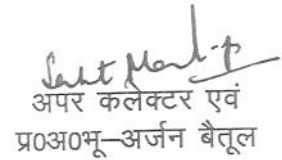 अपर कलेक्टर एवं
प्र०अ०भू–अर्जन बैतूल